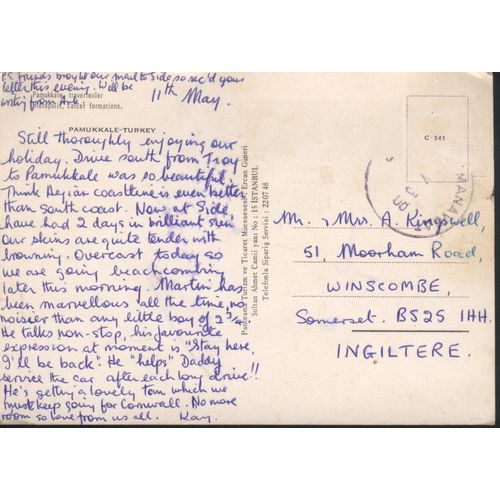 P.S. Friends brought our mail to Side so rec'd your
letter this evening. Will be
writing from
Pamukkale, travertenler
Hierapolis, calcer formations.
11th May.
PAMUKKALE-TURKEY
Still thoroughly enjoying our
holiday. Drive south from Troy
to Pamukkale was so beautiful.
Think Aegian coastline is even better
than south coast. Now at Side,
have had 2 days in brilliant sun
Our skins are quite tender with
browning. Overcast today so
we are going beachcombing
later this morning. Martin has
been marvellous all the time, no
noisier than any little boy of 2¾.
He talks non-stop, his favourite
expression at moment is "Stay here,
I'll be back". He "helps" Daddy
service the car after each long drive!!
He's getting a lovely tan which we
must keep going for Cornwall. No more
room so love from us all. Kay.
Panorama Turizm ve Ticaret Müessesesi, Ercan Gineri
Sultan Ahmet Camii yanı No: 15 İSTANBUL
Telefonla Sipariş Servisi: 22 07 48
C-341
MANAVGAT
Mr. & Mrs. A. Kingswell,
51, Moorham Road,
WINSCOMBE,
Somerset. BS25 1HH.
INGILTERE.